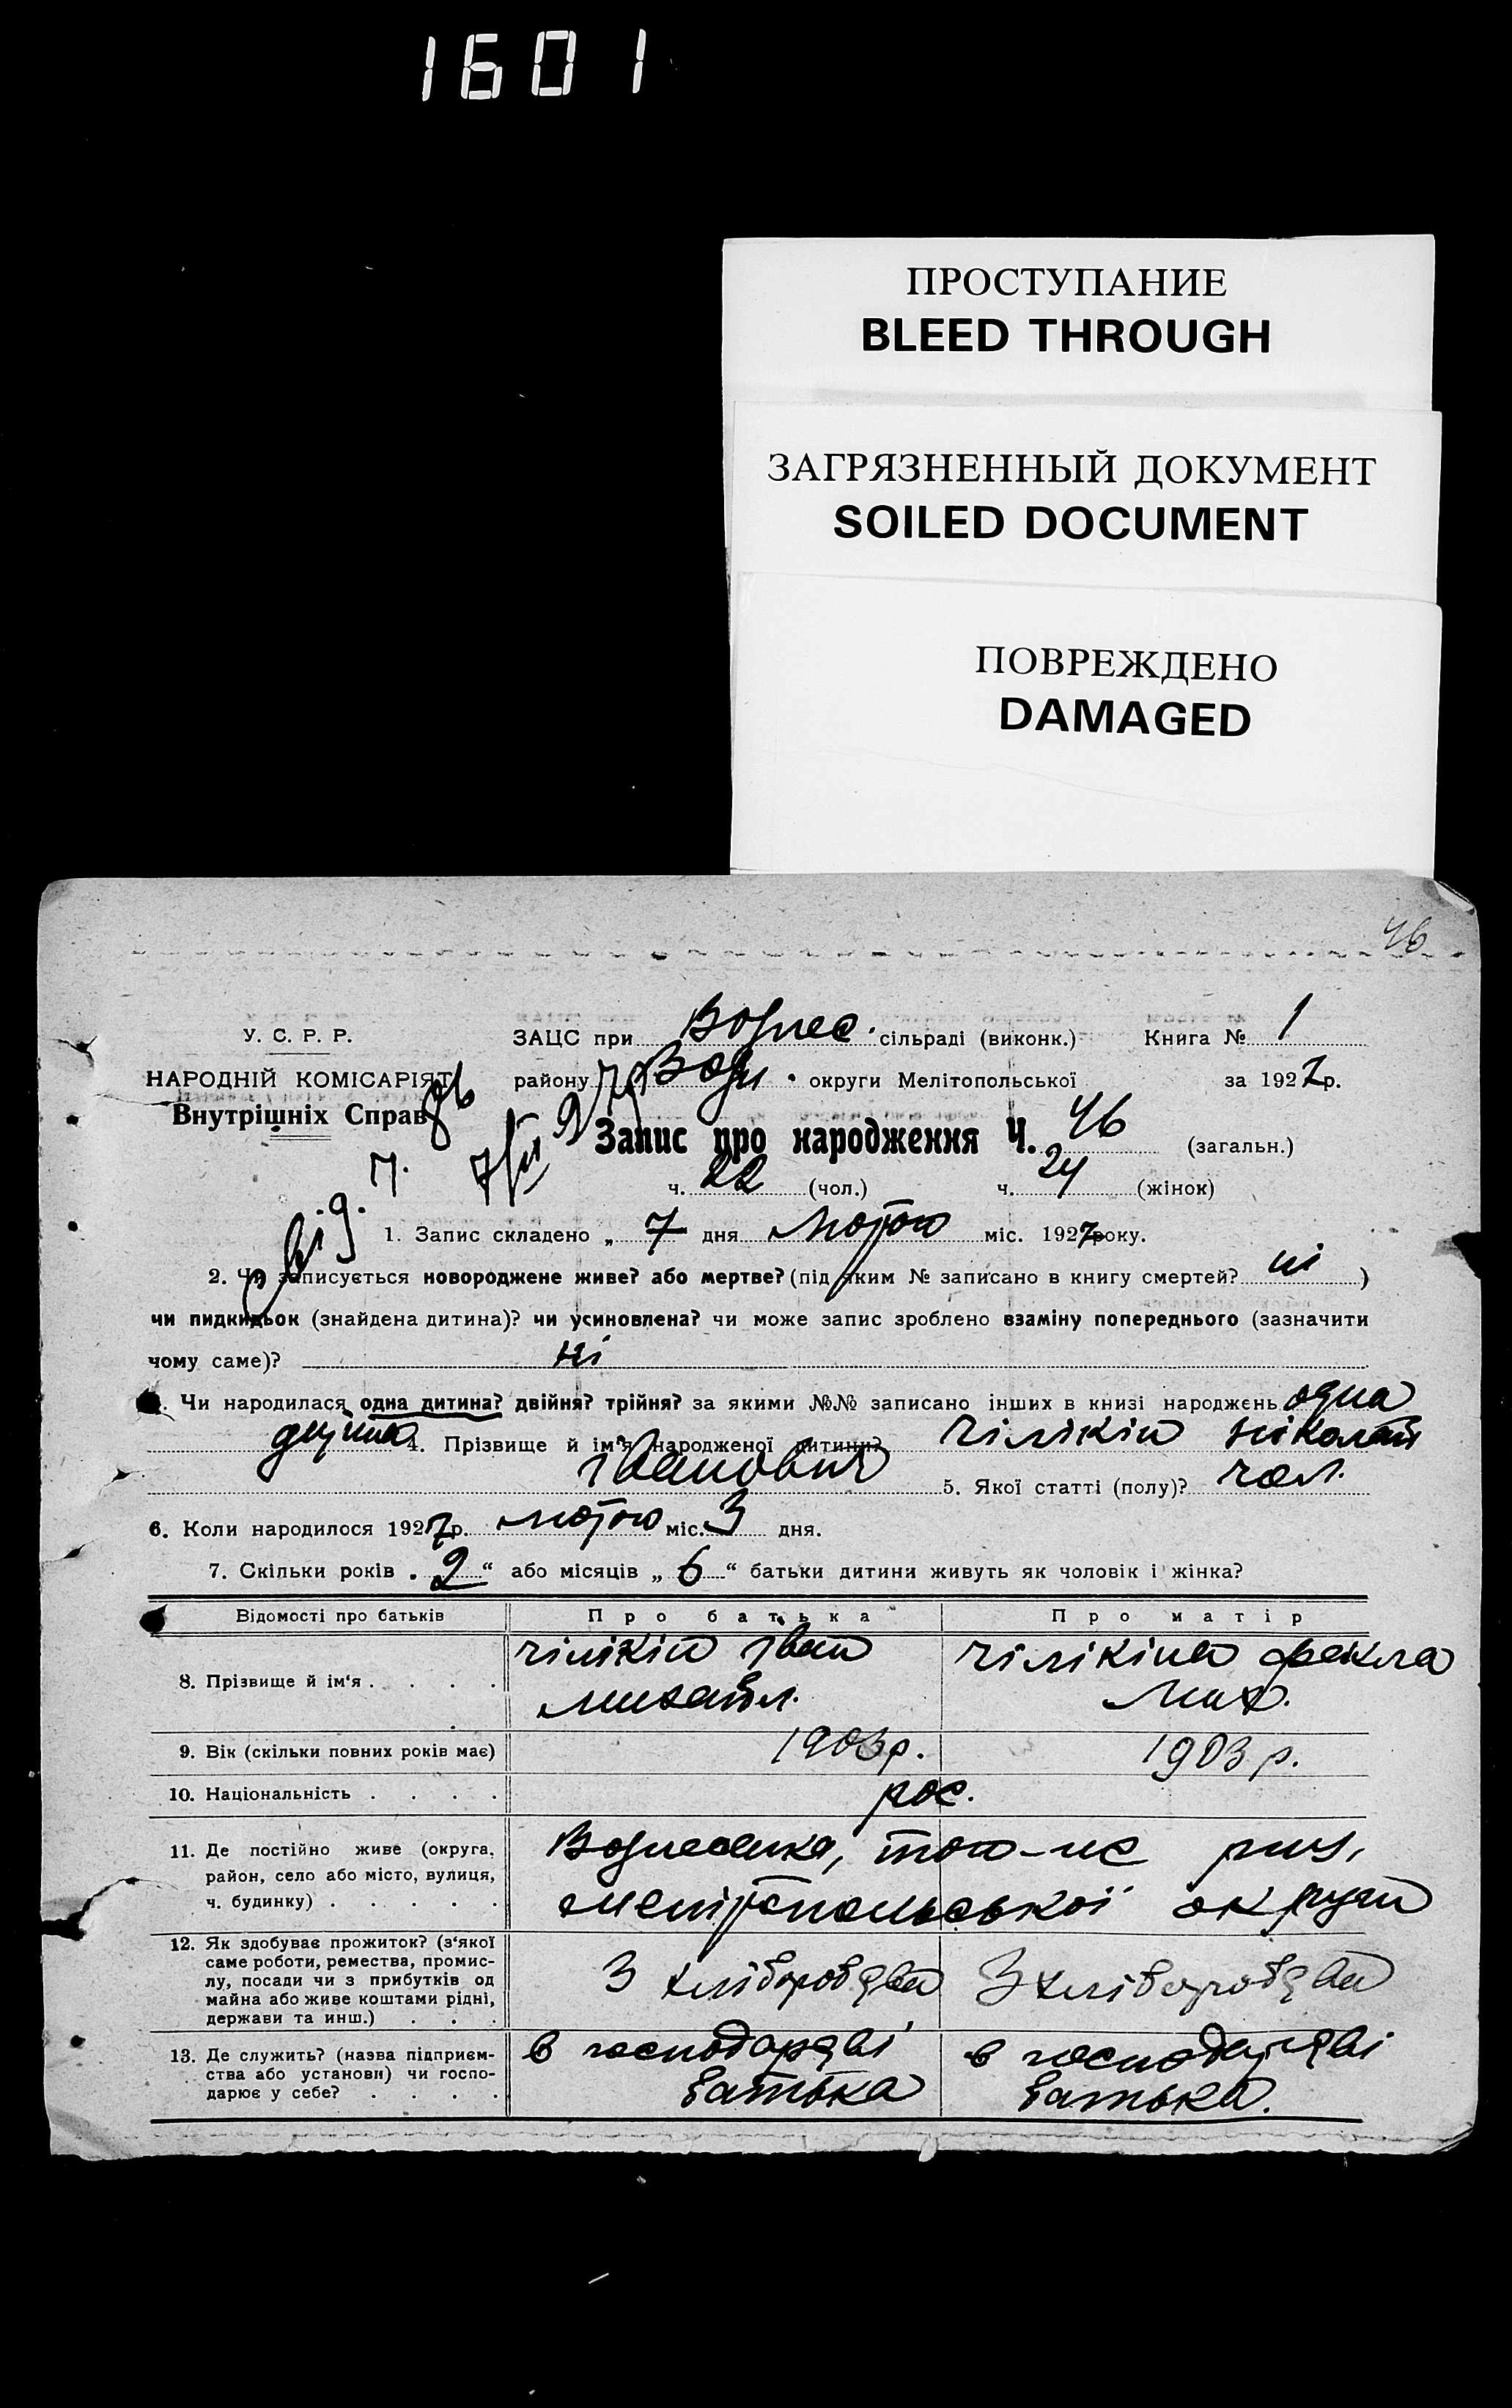 1601
ПРОСТУПАНИЕ
BLEED THROUGH
ЗАГРЯЗНЕННЫЙ ДОКУМЕНТ
SOILED DOCUMENT
ПОВРЕЖДЕНО
DAMAGED
46
У. С. Р. Р.
НАРОДНІЙ КОМІСАРІЯТ
Внутрішніх Справ
ЗАЦС при Вознес. сільраді (виконк.) Книга № 1
району Возн. округи Мелітопольської за 1927р.
Запис про народження Ч. 46 (загальн.)
ч. 22 (чол.) ч. 24 (жінок)
1. Запис складено „ 7 дня лютого міс. 1927року.
2. Чи записується новороджене живе? або мертве? (під яким № записано в книгу смертей? ні )
чи пидкидьок (знайдена дитина)? чи усиновлена? чи може запис зроблено взаміну попереднього (зазначити
чому саме)? ні
. Чи народилася одна дитина? двійня? трійня? за якими №№ записано інших в книзі народжень одна
дитина 4. Прізвище й ім'я народженої дитини? Чілікін Ніколай
Іванович 5. Якої статті (полу)? чол.
6. Коли народилося 1927р. лютого міс. 3 дня.
7. Скільки років „ 2 “ або місяців „ 6 “ батьки дитини живуть як чоловік і жінка?
Відомості про батьків Про батька Про матір
8. Прізвище й ім'я . . . . Чілікін Іван Чілікіна Фекла
Михайл. Мих.
9. Вік (скільки повних років має) 1903р. 1903 р.
10. Національність . . . . рос.
11. Де постійно живе (округа, Вознесенка, того-же
район, село або місто, вулиця,
ч. будинку) . . . . . Мелітопольської округи
12. Як здобуває прожиток? (з'якої
саме роботи, ремества, промис-
лу, посади чи з прибутків од З хліборобства З хліборобства
майна або живе коштами рідні,
держави та инш.) . . .
13. Де служить? (назва підприєм- в господарстві в господарстві
ства або установи) чи госпо-
дарює у себе? . . . . батька батька.